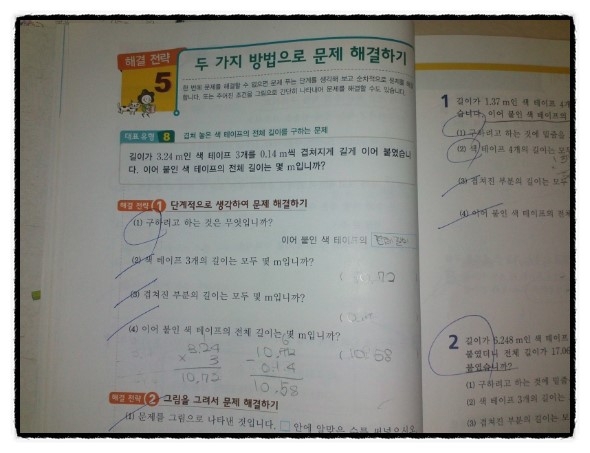 해결 전략
5
두 가지 방법으로 문제 해결하기
한 번에 문제를 해결할 수 없으면 문제 푸는 단계를 생각해 보고 순차적으로 문제를 해결
합니다. 또는 주어진 조건을 그림으로 간단히 나타내어 문제를 해결할 수도 있습니다.
대표 유형 8 겹쳐 놓은 색 테이프의 전체 길이를 구하는 문제
길이가 3.24 m인 색 테이프 3개를 0.14 m씩 겹쳐지게 길게 이어 붙였습니
다. 이어 붙인 색 테이프의 전체 길이는 몇 m입니까?
해결 전략 1 단계적으로 생각하여 문제 해결하기
(1) 구하려고 하는 것은 무엇입니까?
이어 붙인 색 테이프의
(2) 색 테이프 3개의 길이는 모두 몇 m입니까?
(3) 겹쳐진 부분의 길이는 모두 몇 m입니까?
(4) 이어 붙인 색 테이프의 전체 길이는 몇 m입니까?
3.24
× 3
10.72
0.14
10.58
(10.58
해결 전략 2 그림을 그려서 문제 해결하기
(1) 문제를 그림으로 나타낸 것입니다. □ 안에 알맞은 수를 써넣으시오
1 길이가 1.37 m인 색 테이프 4개
습니다. 이어 붙인 색 테이프의
(1) 구하려고 하는 것에 밑줄을
(2) 색 테이프 4개의 길이는 모두
(3) 겹쳐진 부분의 길이는 모두
(4) 이어 붙인 색 테이프의 전체
2 길이가 5.248 m인 색 테이프
붙였더니 전체 길이가 17.06
붙였습니까?
(1) 구하려고 하는 것에 밑줄
(2) 색 테이프 3개의 길이는
(3) 겹쳐진 부분의 길이는 모